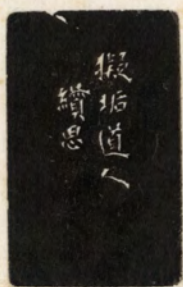 擬垢道人
續思